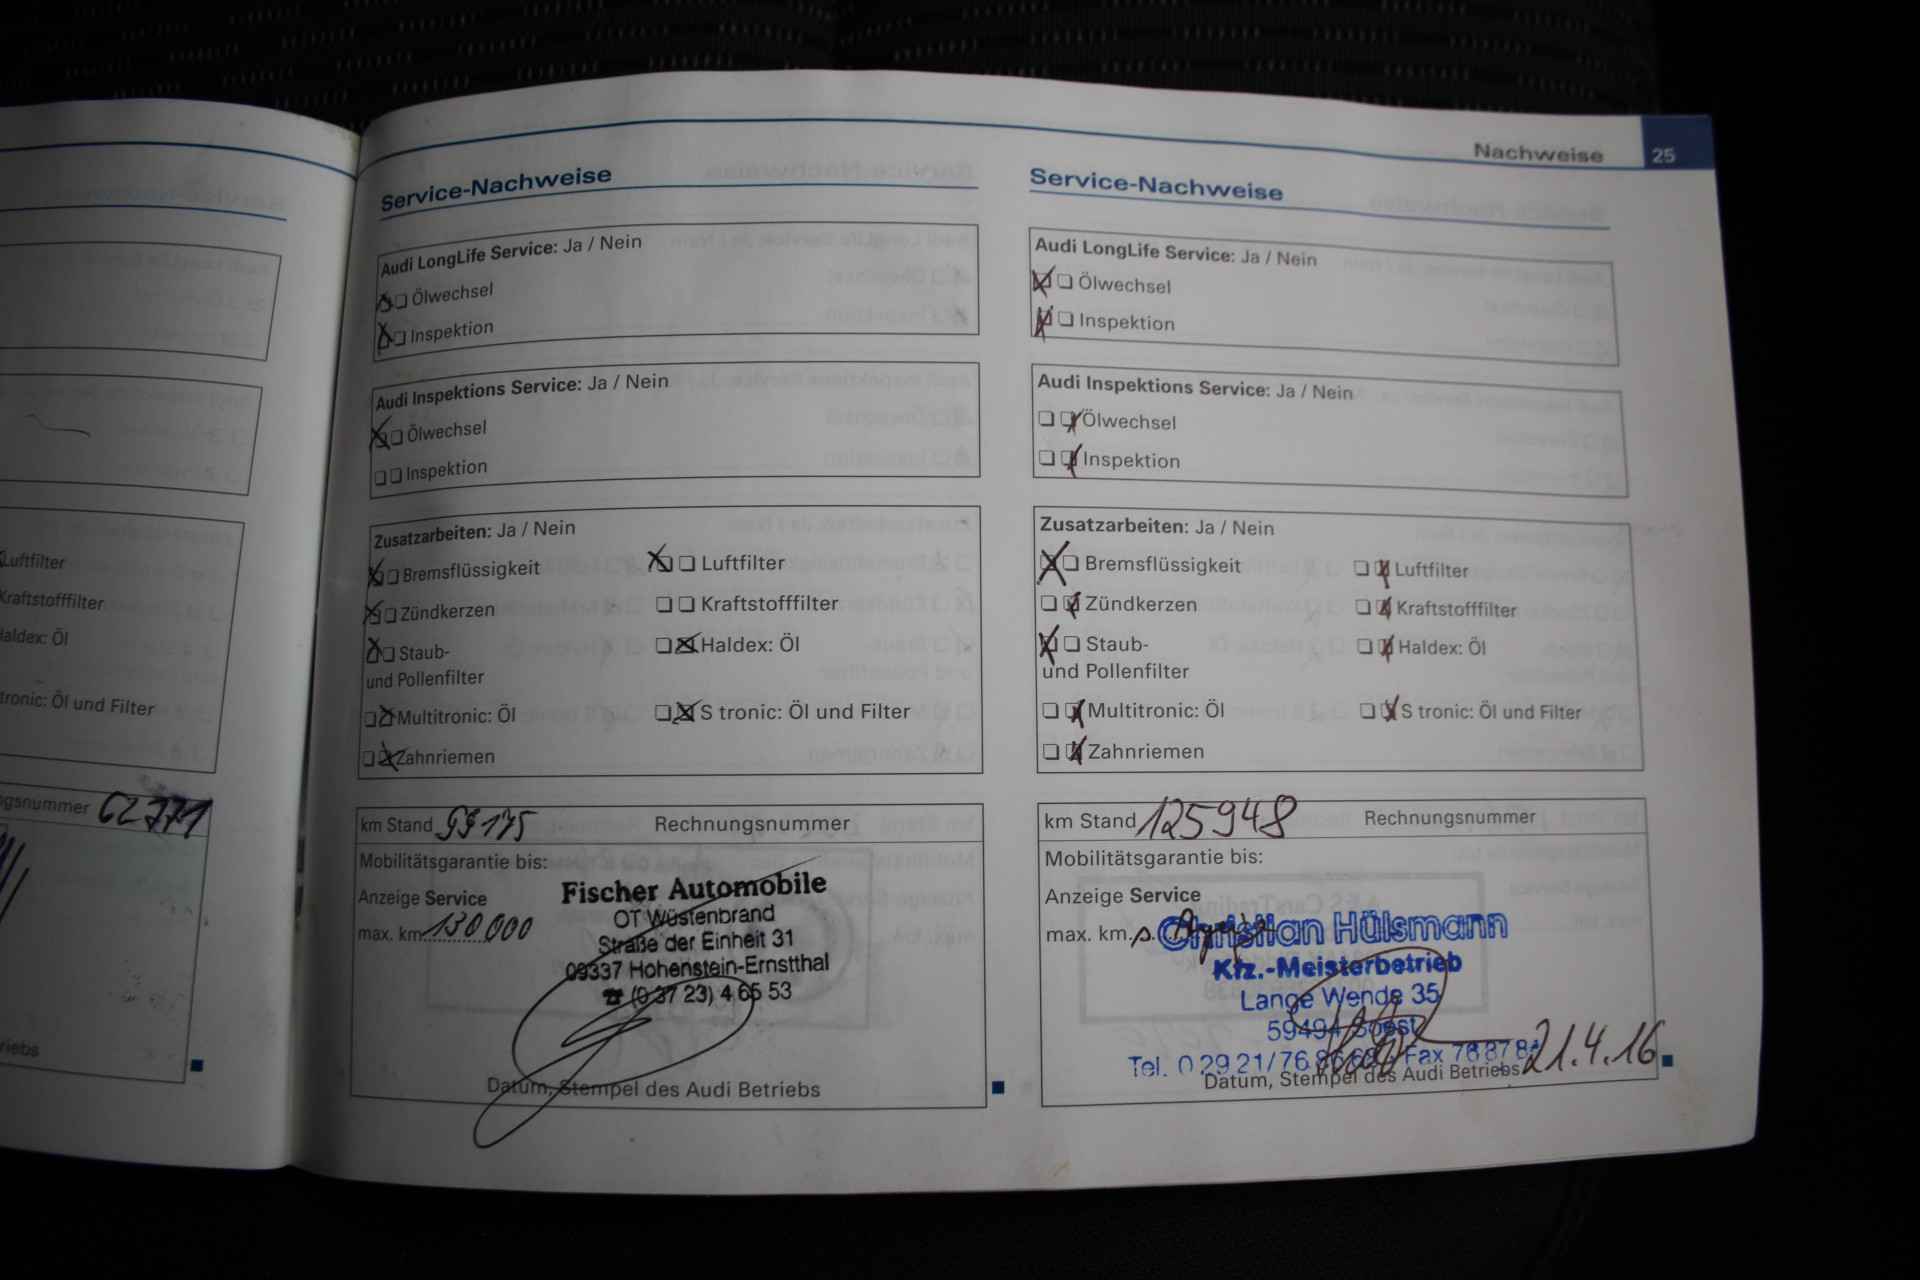 Nachweise 25
Luftfilter
Kraftstofffilter
Haldex: Öl
tronic: Öl und Filter
ngsnummer 62771
riebs
Service-Nachweise
Audi LongLife Service: Ja / Nein
Ölwechsel
Inspektion
Audi Inspektions Service: Ja / Nein
Ölwechsel
Inspektion
Zusatzarbeiten: Ja / Nein
Bremsflüssigkeit
Luftfilter
Zündkerzen
Kraftstofffilter
Staub-
und Pollenfilter
Haldex: Öl
Multitronic: Öl
S tronic: Öl und Filter
Zahnriemen
km Stand 99175 Rechnungsnummer
Mobilitätsgarantie bis:
Anzeige Service
max. km 130000
Fischer Automobile
OT Wüstenbrand
Straße der Einheit 31
09337 Hohenstein-Ernstthal
☎ (0 37 23) 4 65 53
Datum, Stempel des Audi Betriebs
Service-Nachweise
Audi LongLife Service: Ja / Nein
Ölwechsel
Inspektion
Audi Inspektions Service: Ja / Nein
Ölwechsel
Inspektion
Zusatzarbeiten: Ja / Nein
Bremsflüssigkeit
Luftfilter
Zündkerzen
Kraftstofffilter
Staub-
und Pollenfilter
Haldex: Öl
Multitronic: Öl
S tronic: Öl und Filter
Zahnriemen
km Stand 125948 Rechnungsnummer
Mobilitätsgarantie bis:
Anzeige Service
max. km. s.
Christian Hülsmann
Kfz.-Meisterbetrieb
Lange Wende 35
59494 Soest
Tel. 0 29 21/76 86 Fax 76 87 84
Datum, Stempel des Audi Betriebs 21.4.16